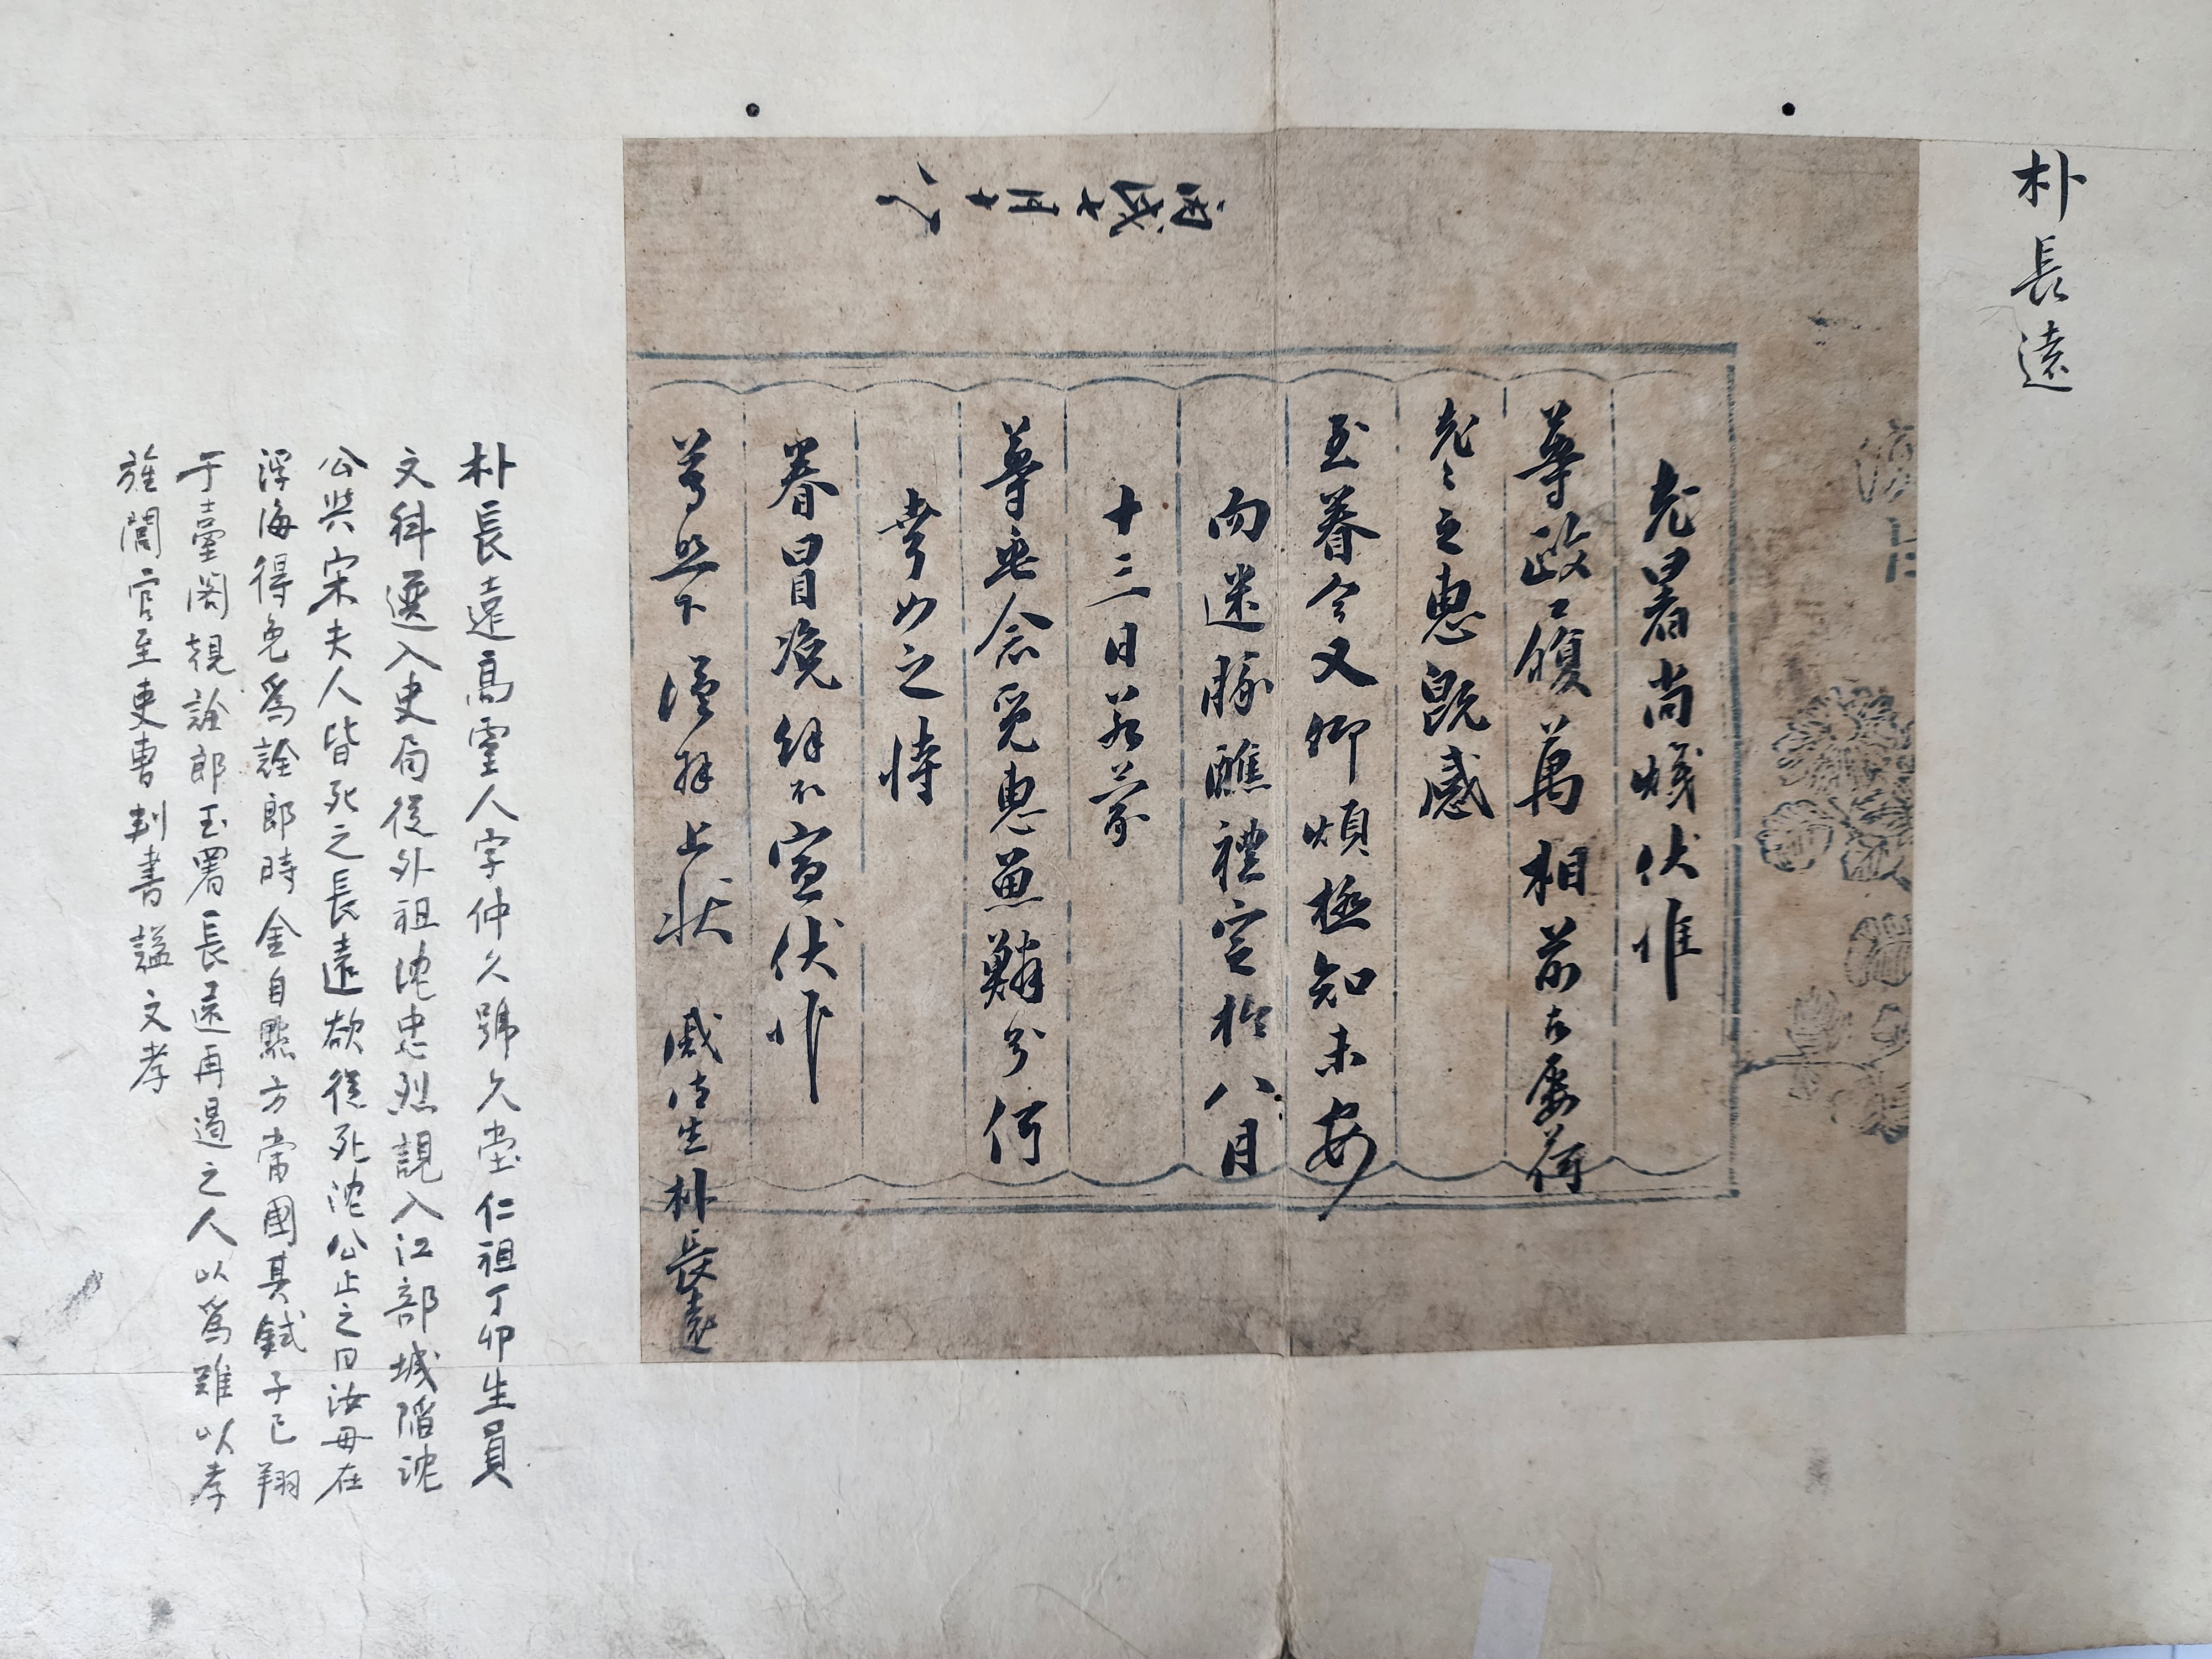 朴長遠
老暑尚熾伏惟
尊政履萬相前右屡荷
老〻之惠旣感
至眷今又仰煩極知未安
而迷豚醮禮定於八月
十三日若蒙
尊垂念覓惠魚鱗分何
幸如之恃
眷冒浼餘不宣伏惟
尊照下謹拜上狀 戚侍生朴長遠
丙戌七月十八
朴長遠高靈人字仲久號久堂仁祖丁卯生員
文科選入史局從外祖沈忠烈誢入江都城陷沈
公與宋夫人皆死之長遠欲從死沈公止之曰汝母在
浮海得免爲詮郎時金自點方當國其弑子已翔
于臺閣覬詮郎玉署長遠再遏之人以爲難以孝
旌閭官至吏曹判書諡文孝